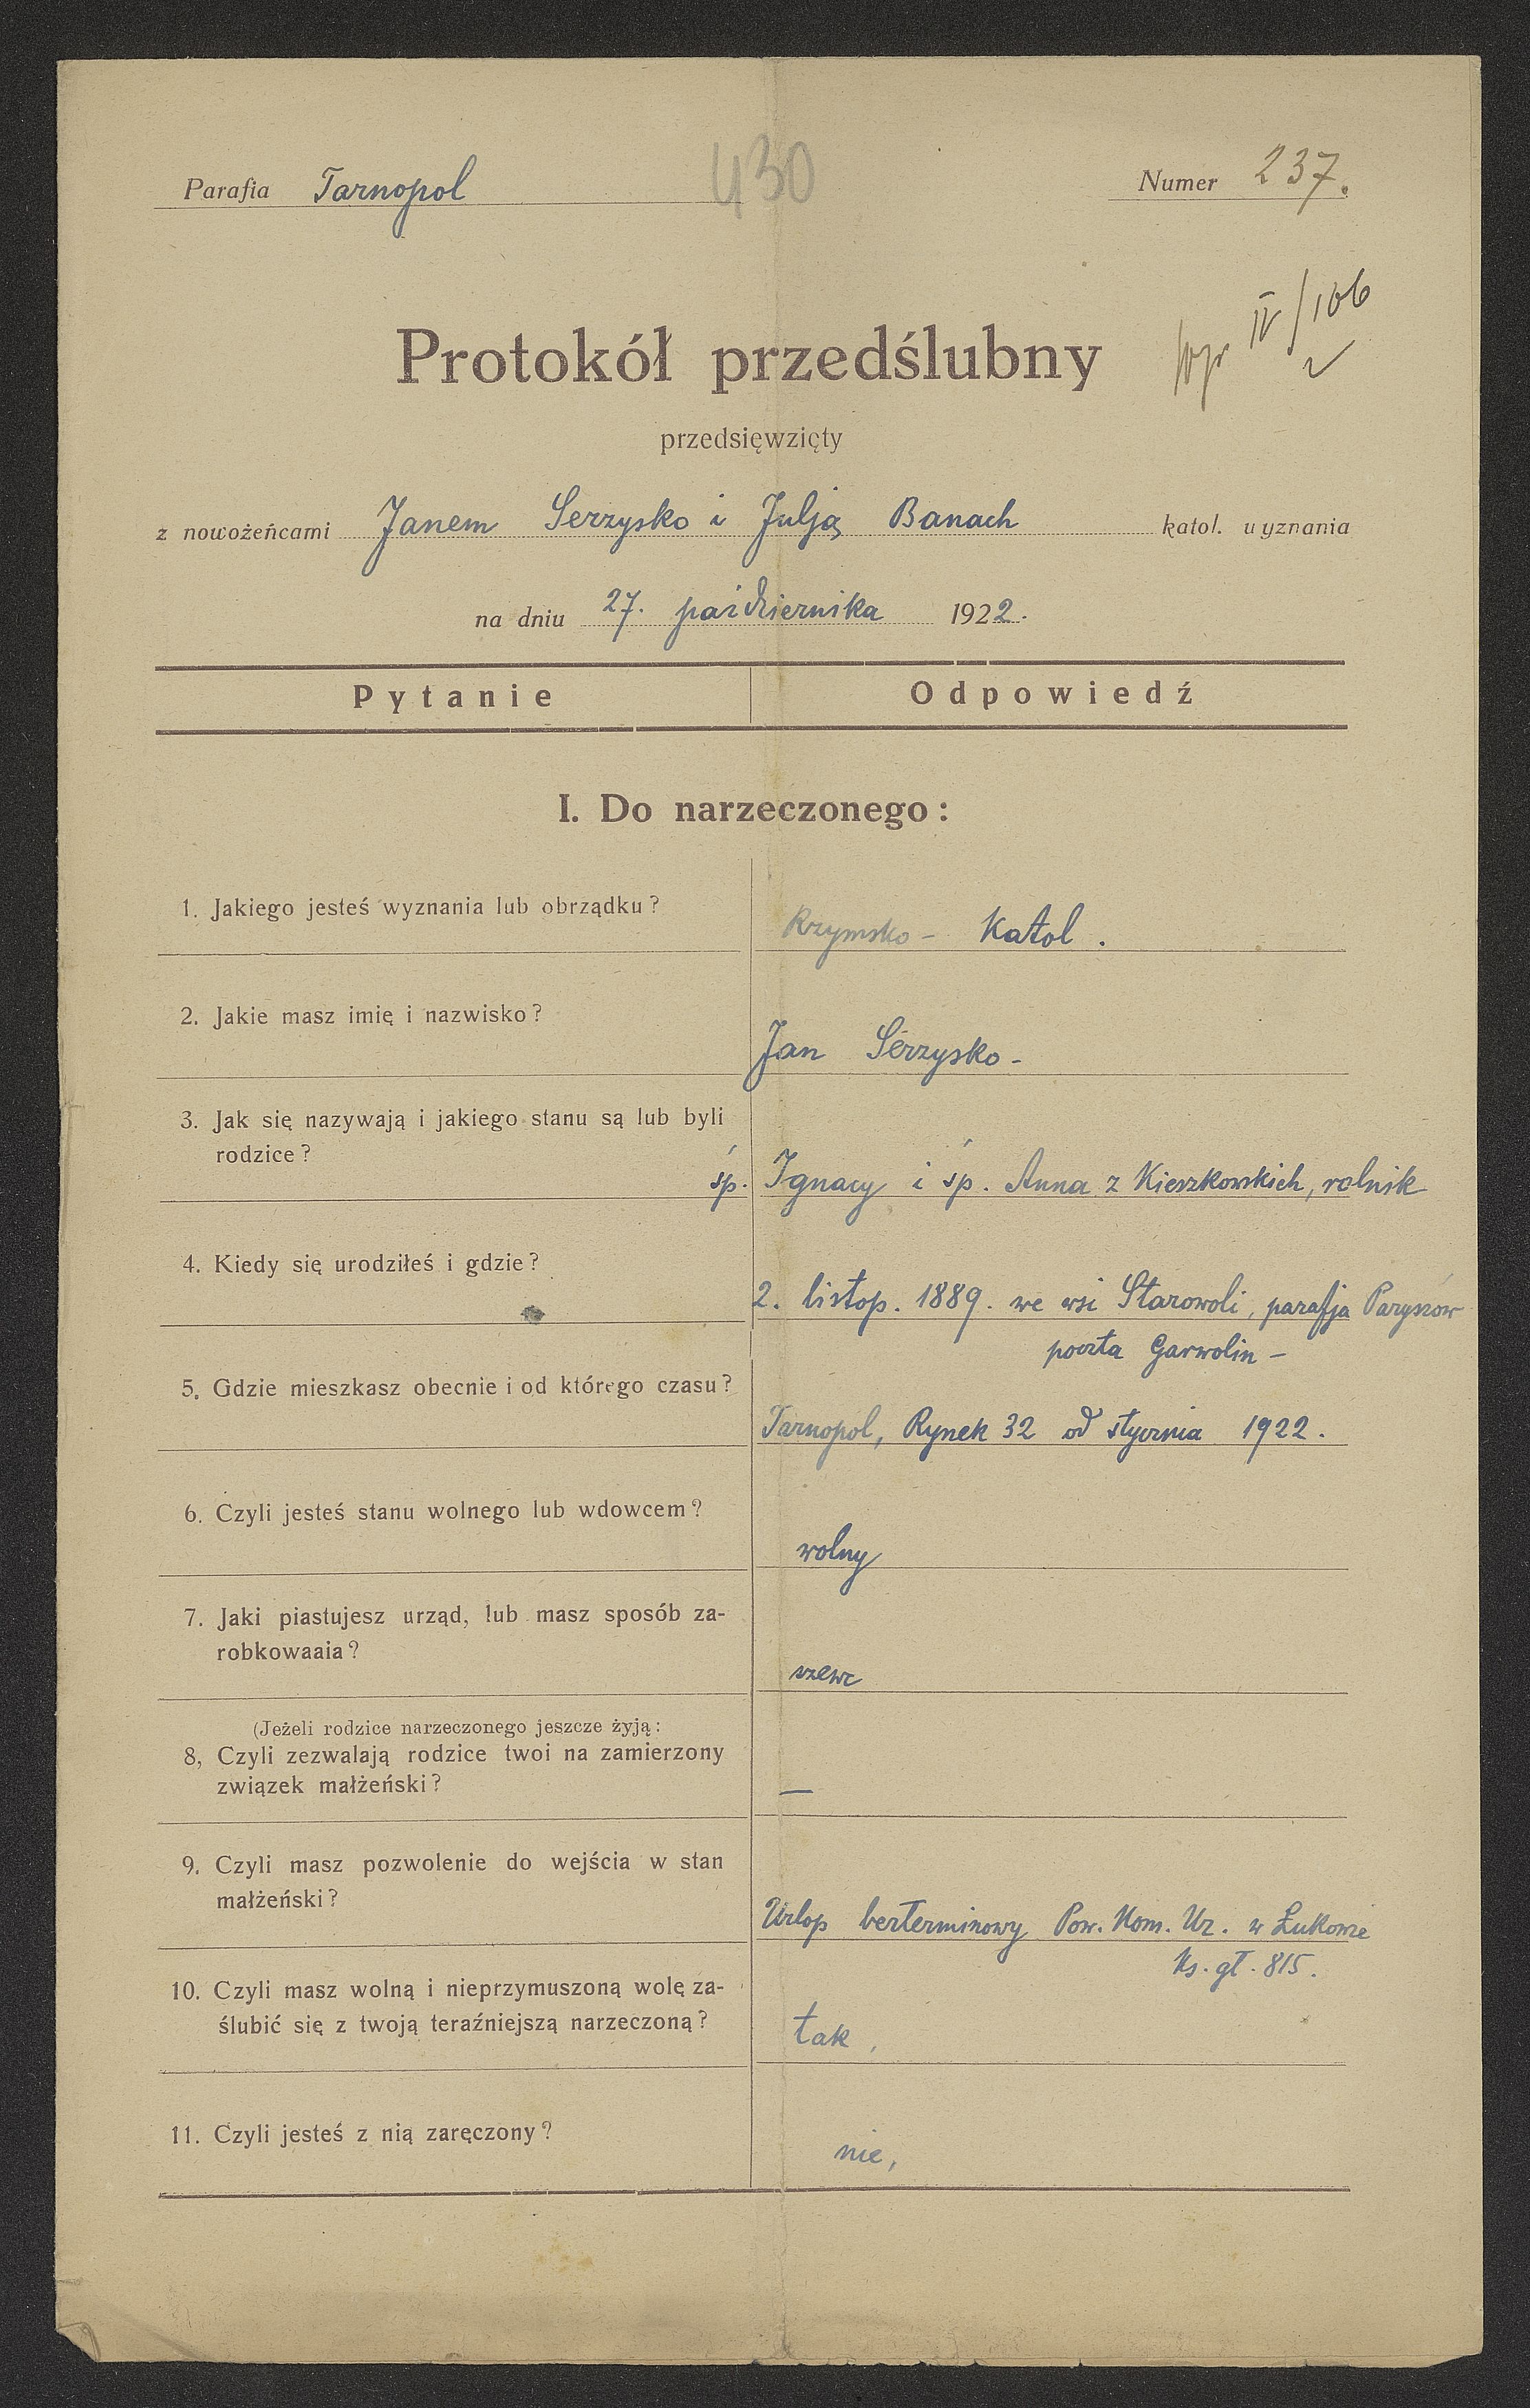 Parafia Tarnopol 430 Numer 237.
IV/106
Protokół przedślubny
przedsięwzięty
z nowożeńcami Janem Serzysko i Julją Banach katol. wyznania
na dniu 27. października 1922.
Pytanie Odpowiedź
I. Do narzeczonego:
1. Jakiego jesteś wyznania lub obrządku?
Rzymsko- Katol.
2. Jakie masz imię i nazwisko?
Jan Serzysko -
3. Jak się nazywają i jakiego stanu są lub byli
rodzice?
śp. Ignacy i śp. Anna z Kieszkowskich, rolnik
4. Kiedy się urodziłeś i gdzie?
2. listop. 1889. we wsi Starowoli, parafja Parysów
poczta Garwolin -
5. Gdzie mieszkasz obecnie i od którego czasu?
Tarnopol, Rynek 32 od stycznia 1922.
6. Czyli jesteś stanu wolnego lub wdowcem?
wolny
7. Jaki piastujesz urząd, lub masz sposób za-
robkowaaia?
szewc
(Jeżeli rodzice narzeczonego jeszcze żyją:
8, Czyli zezwalają rodzice twoi na zamierzony
związek małżeński?
—
9. Czyli masz pozwolenie do wejścia w stan
małżeński?
Urlop bezterminowy Pow. Kom. Uz. w Łukowie
Ks. gł. 815.
10. Czyli masz wolną i nieprzymuszoną wolę za-
ślubić się z twoją teraźniejszą narzeczoną?
tak,
11. Czyli jesteś z nią zaręczony?
nie,